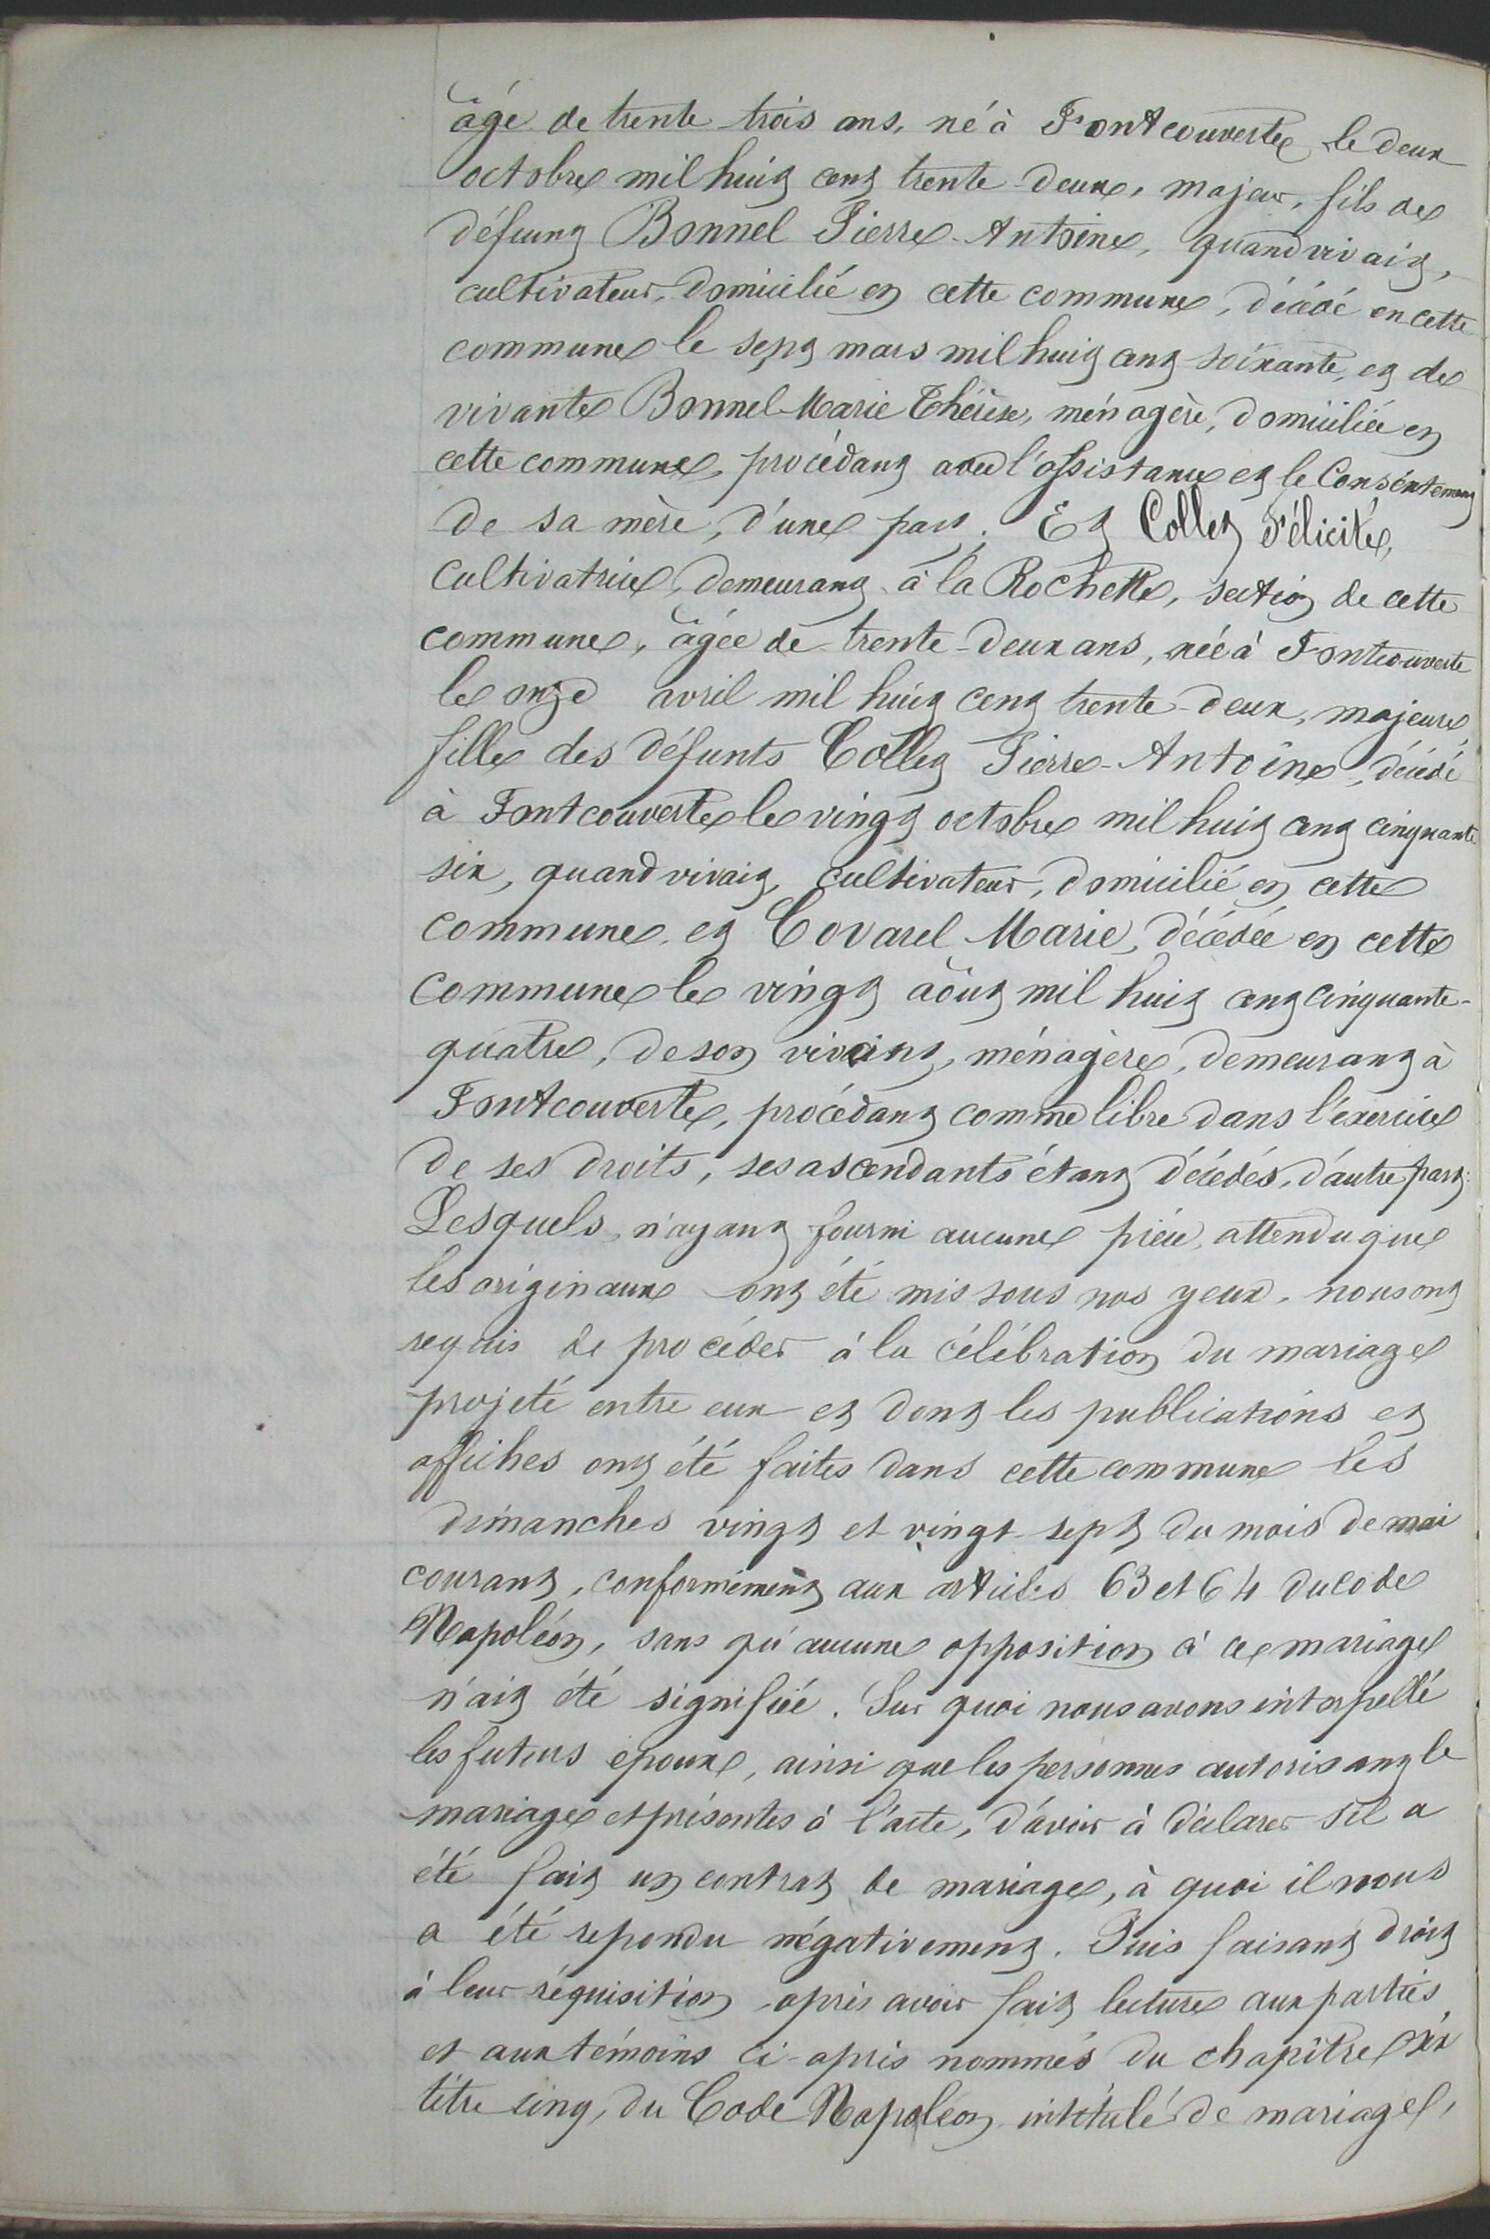 âgé de trente-trois ans, né à Fontcouverte le deux
octobre mil huit cent trente-deux, majeur, fils de
défunt Bonnel Pierre-Antoine, quand vivait,
cultivateur, domicilié en cette commune, décédé en cette
commune le sept mars mil huit cent soixante, et de
vivante Bonnel Marie Thérèse, ménagère, domiciliée en
cette commune, procédant avec l'assistance et le Consentement
de sa mère, d'une part; Et Collet Félicité,
Cultivatrice, demeurant à la Rochette, section de cette
commune, âgée de trente-deux ans, née à Fontcouverte
le onze avril mil huit cent trente-deux, majeure,
fille des défunts Collet Pierre-Antoine, décédé
à Fontcouverte le vingt octobre mil huit cent cinquante
six, quand vivait, cultivateur, domicilié en cette
commune, et Covarel Marie, décédée en cette
commune le vingt août mil huit cent cinquante-
quatre, de son vivant, ménagère, demeurant à
Fontcouverte, procédant comme libre dans l'exercice
de ses droits, ses ascendants étant décédés, d'autre part:
Lesquels, n'ayant fourni aucune pièce, attendu que
les originaux ont été mis sous nos yeux, nous ont
requis de procéder à la célébration du mariage
projeté entre eux et dont les publications et
affiches ont été faites dans cette commune les
dimanches vingt et vingt-sept du mois de mai
courant, conformément aux articles 63 et 64 du code
Napoléon, sans qu'aucune opposition à ce mariage
n'ait été signifiée. Sur quoi nous avons interpellé
les futurs epoux, ainsi que les personnes autorisant le
mariage et présentes à l'acte, d'avoir à déclarer s'il a
été fait un contrat de mariage, à quoi il nous
a été repondu négativement. Puis faisant droit
à leur réquisition, après avoir fait lecture aux parties
et aux témoins ci-après nommés du chapître six
titre cinq, du Code Napoléon intitulé de mariage,